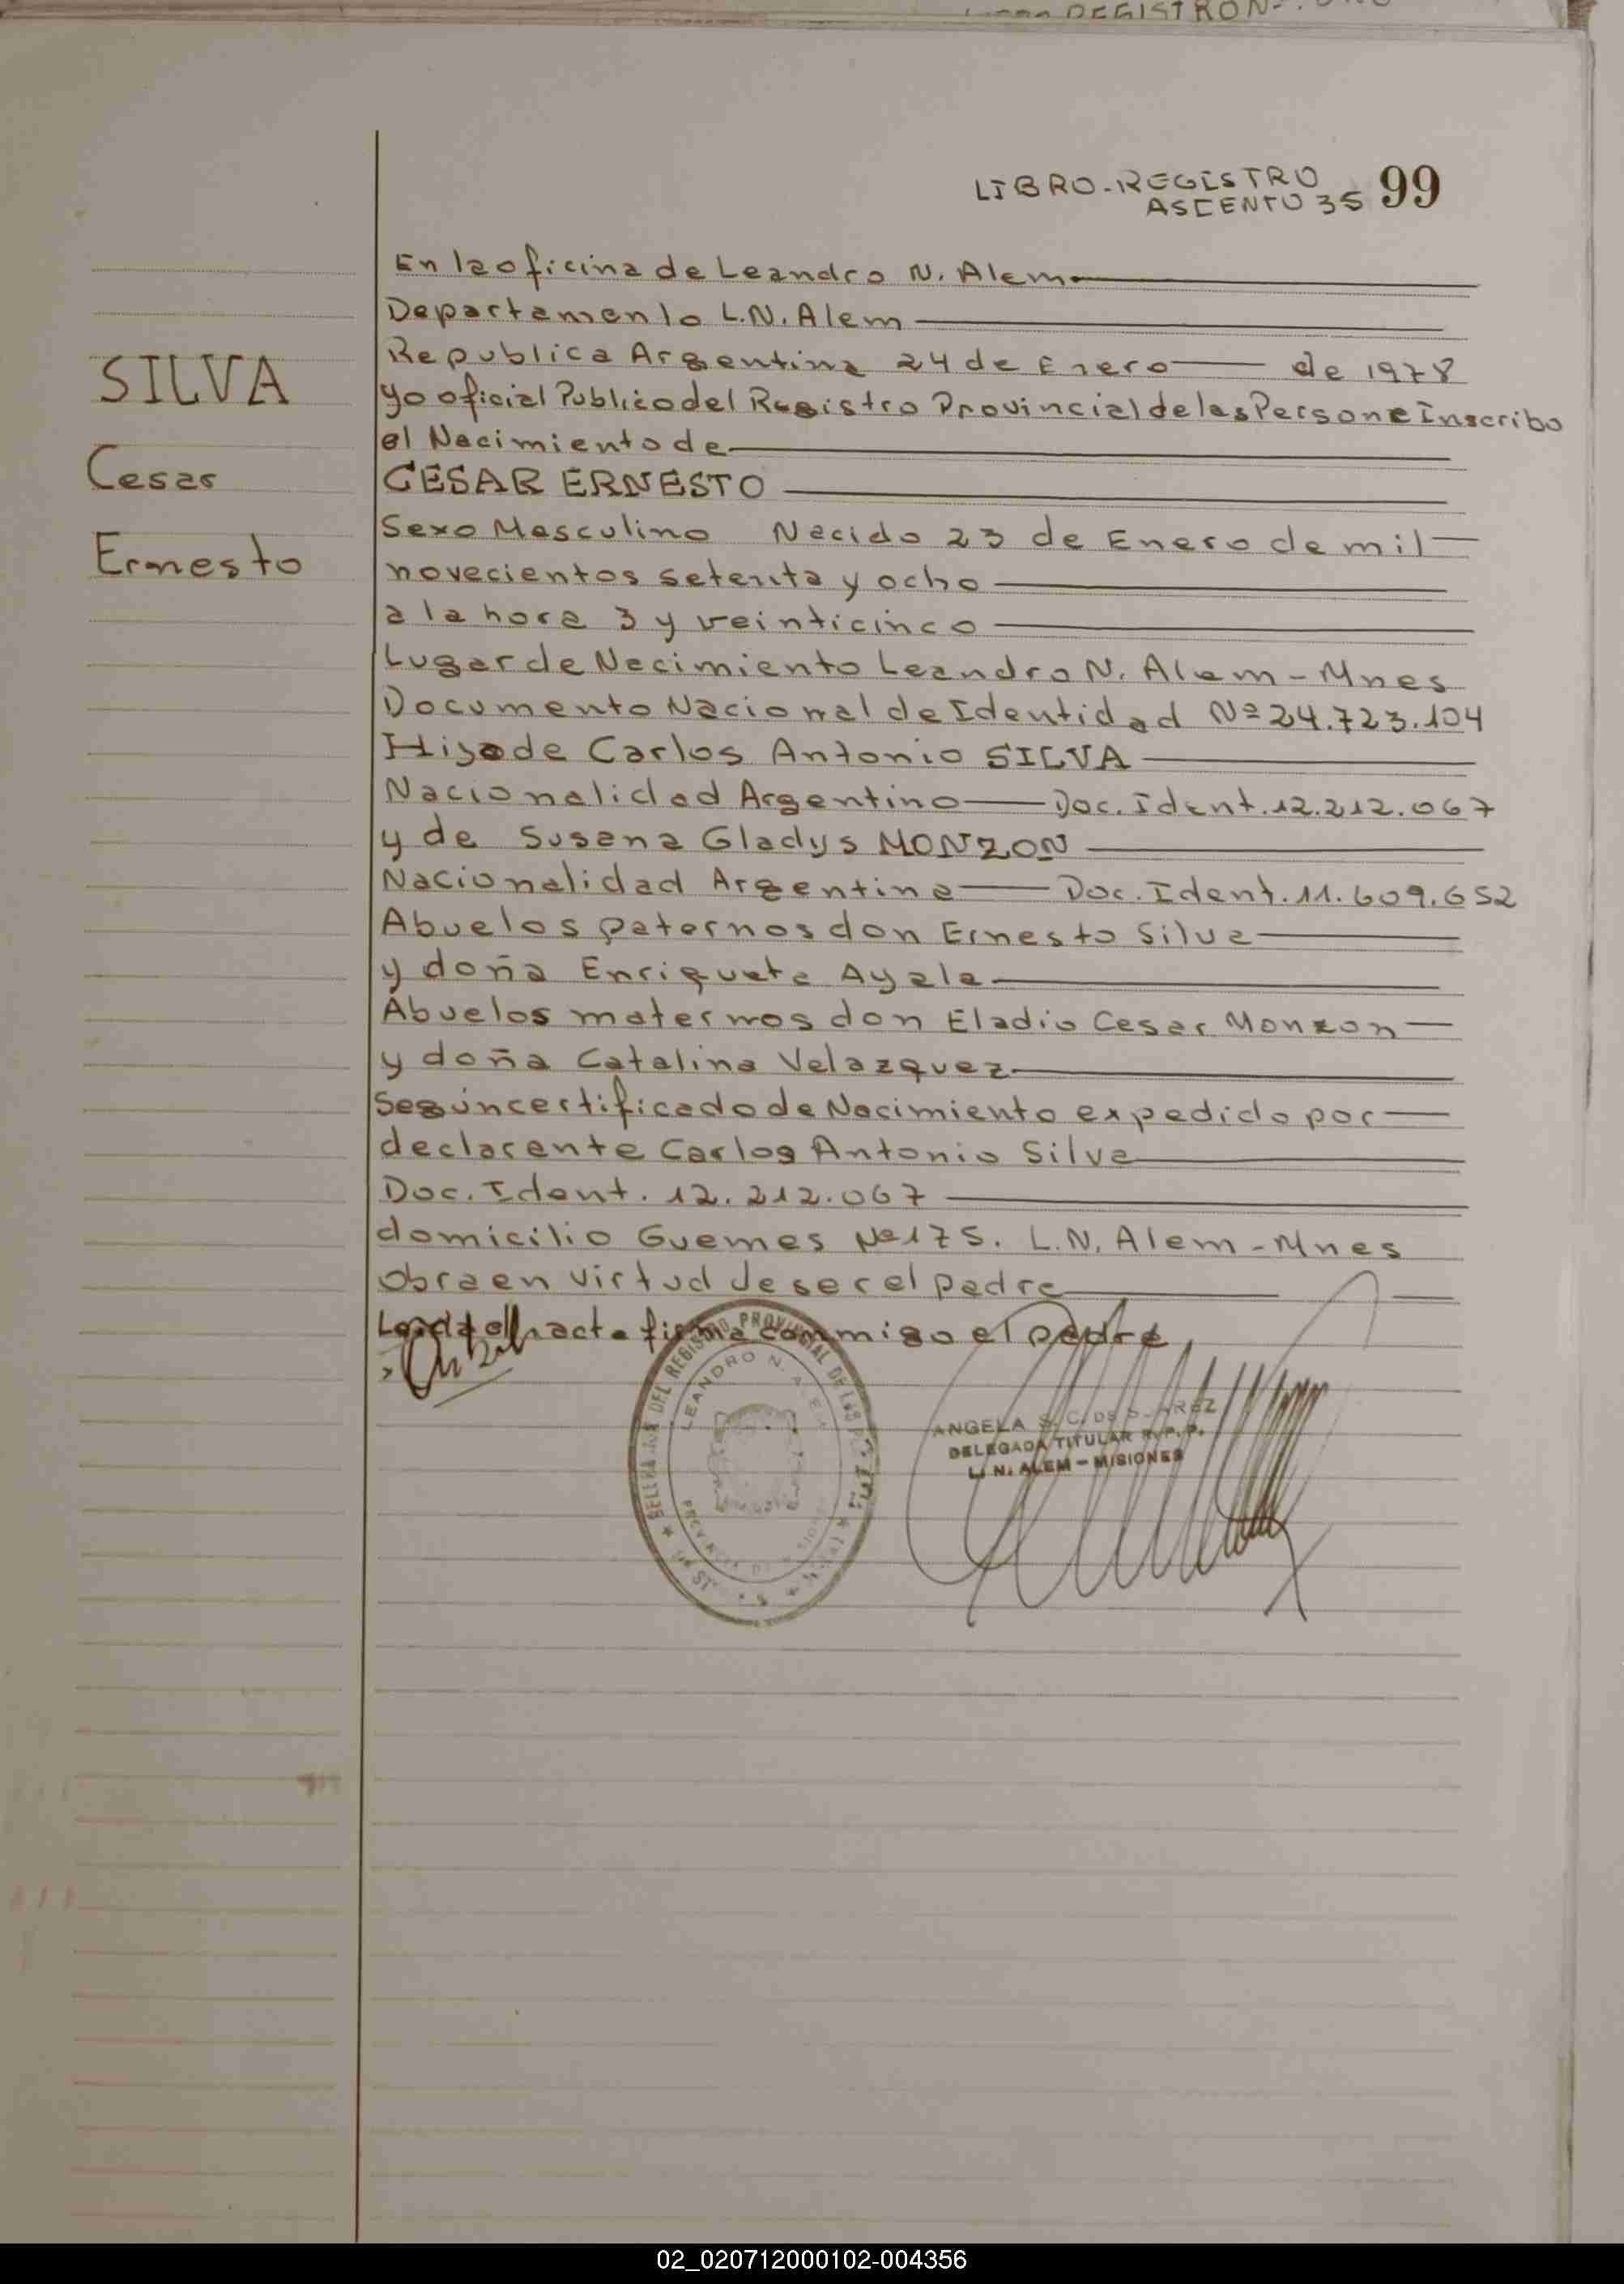 REGISTRO N
LIBRO-REGISTRO
ASCENTO 35 99
En la oficina de Leandro N. Alem
Departamento L.N. Alem
Republica Argentina 24 de Enero de 1978
SILVA
yo oficial Publico del Registro Provincial de las Persone Inscribo
el Nacimiento de
Cesar
CESAR ERNESTO
Sexo Masculino Nacido 23 de Enero de mil
Ernesto
novecientos setenta y ocho
a la hora 3 y veinticinco
Lugar de Nacimiento Leandro N. Alem - Mnes
Documento Nacional de Identidad Nº 24.723.104
Hijo de Carlos Antonio SILVA
Nacionalidad Argentino Doc. Ident. 12.212.067
y de Susana Gladys MONZON
Nacionalidad Argentina Doc. Ident. 11.609.652
Abuelos paternos don Ernesto Silva
y doña Enriqueta Ayala
Abuelos maternos don Eladio Cesar Monzon
y doña Catalina Velazquez
Según certificado de Nacimiento expedido por
declarante Carlos Antonio Silva
Doc. Ident. 12.212.067
domicilio Guemes Nº 175. L.N. Alem - Mnes
Obra en virtud de ser el padre
acta firma conmigo el padre
DEL REGISTRO PROVINCIAL DE LAS
LEANDRO N. ALEM
ANGELA S. C. DE
DELEGADA TITULAR R.P.P.
L. N. ALEM - MISIONES
02_020712000102-004356